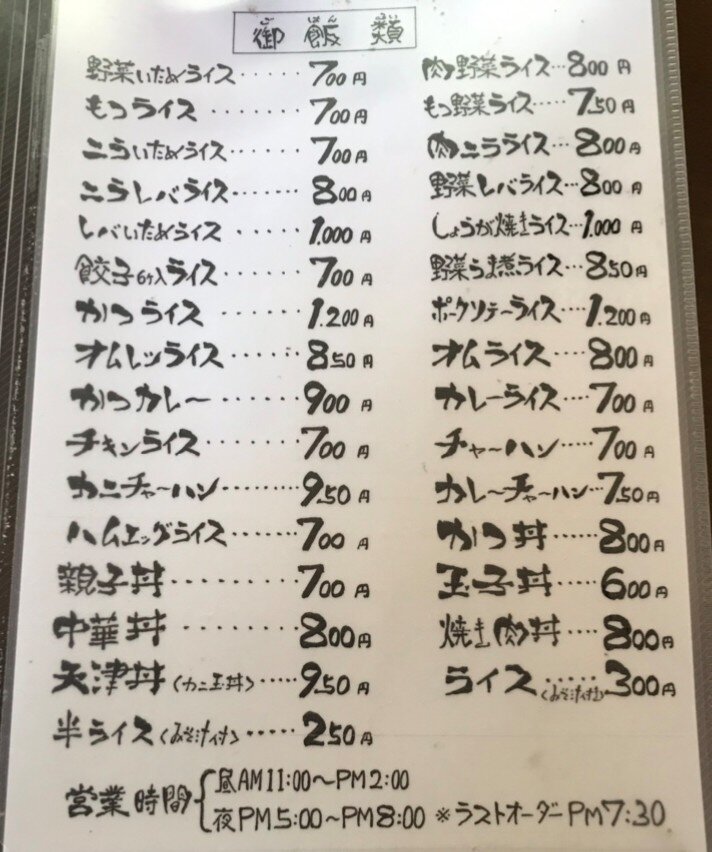 御飯類
野菜いためライス・・・・・・700円
もつライス・・・・・・・・700円
ニラいためライス・・・・・・700円
ニラレバライス・・・・・・・800円
レバいためライス・・・・・・1.000円
餃子6ケ入ライス・・・・・・700円
かつライス・・・・・・・・1.200円
オムレツライス・・・・・・850円
かつカレー・・・・・・・・900円
チキンライス・・・・・・・・700円
カニチャーハン・・・・・・・・950円
ハムエッグライス・・・・・・700円
親子丼・・・・・・・・700円
中華丼・・・・・・・・800円
天津丼(カニ玉丼)・・・・950円
半ライス(みそ汁付)・・・・・250円
肉野菜ライス・・・800円
もつ野菜ライス・・・・・750円
肉ニラライス・・・800円
野菜レバライス・・・800円
しょうが焼きライス・・・1.000円
野菜うま煮ライス・・・850円
ポークソテーライス・・・1.200円
オムライス・・・・800円
カレーライス・・・・700円
チャーハン・・・・・700円
カレーチャーハン・・・750円
かつ丼・・・・・800円
玉子丼・・・・・600円
焼き肉丼・・・・800円
ライス(みそ汁付)・・・・・300円
営業時間
昼AM11:00〜PM2:00
夜PM5:00〜PM8:00 ※ラストオーダーPM7:30